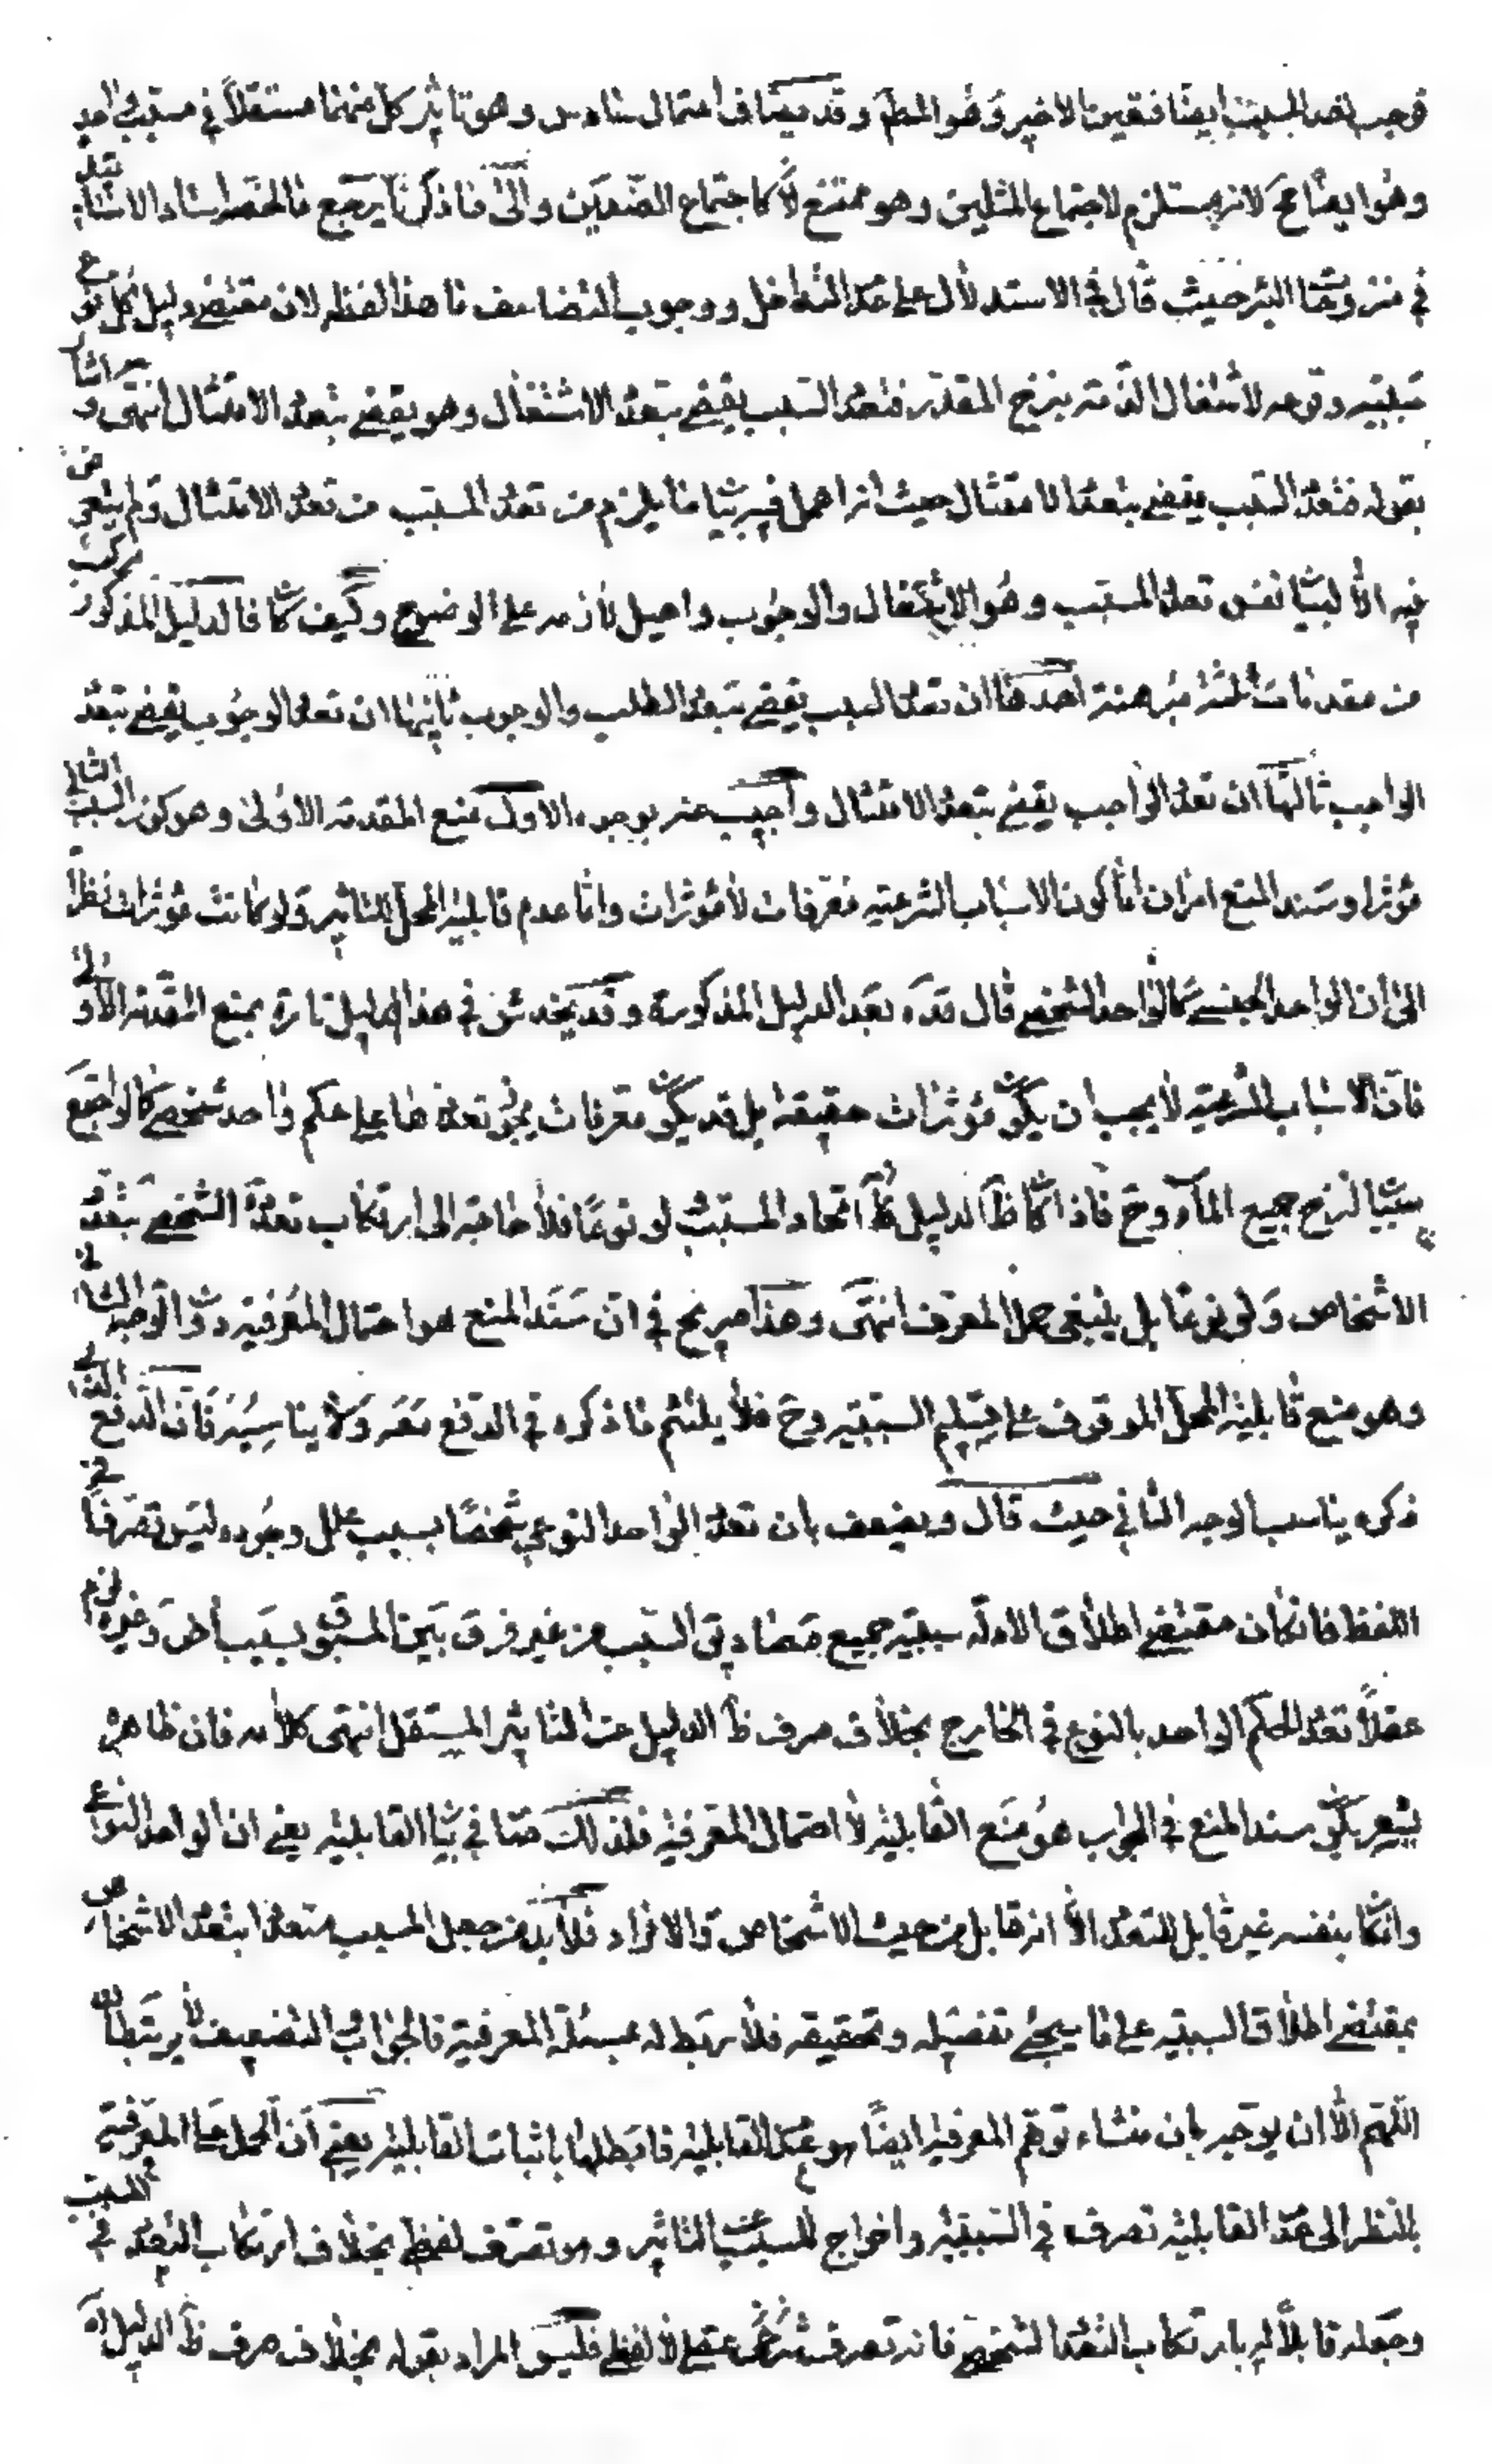 فوجب تعدد المسبب ايضا فتعين الاخير وهو المطم وقد يضاف احتمال سادس وهو تاثير كل منهما مستقلاً في مسبب واحد
وهو ايضا مح لانه مستلزم لاجتماع المثلين وهو ممتنع كاجتماع الضدين والى ما ذكرنا يرجع ما اختصر استاد الاستاد
في منزوحات البئر حيث قال في الاستدلال على عدم التداخل ووجوب التضاعف ما هذا لفظه لان مقتضى دليل كل نوع
سببيته وتوجه لاشتغال الذمة بنزح المقدر فتعدد السبب يقتضى تعدد الاشتغال وهو يقتضى تعدد الامتثال انتهى و اشار
بقوله فتعدد السبب يقتضى تعدد الامتثال حيث انه اهمل فيه بيان ما يلزم من تعدد المسبب من تعدد الامتثال ولم يتعرض
فيه الا لبيان نفس تعدد المسبب وهو الاشتغال والوجوب واحيل لازمه على الوضوح وكيف كان فالدليل المذكور مركب
من مقدمات ثلثة مبرهنة احدها ان تعدد السبب يقتضى تعدد الطلب والوجوب ثانيها ان تعدد الوجوب يقتضى تعدد
الواجب ثالثها ان تعدد الواجب يقتضى تعدد الامتثال واجيب عنه بوجوه الاول منع المقدمة الاولى وهو كون السبب الثانى
مؤثرا وسند المنع امران اما كون الاسباب الشرعية معرفات لا مؤثرات واما عدم قابلية المحل للتاثير ولو كانت مؤثرات نظرا
الى ان الواحد الجنسى كالواحد الشخصى قال قده بعد الدليل المذكور وقد يخدش في هذا الدليل تارة بمنع المقدمة الاولى
فان الاسباب الشرعية لا يجب ان يكون مؤثرات حقيقة بل قد يكون معرفات يجوز تعددها على حكم واحد شخصى كالواجتمع
سببان لنزح جميع الماء وح فاذا كان ظ الدليل اتحاد المسبب لو نوعا فلا حاجة الى ارتكاب تعدد الشخصى بتعدد
الاشخاص ولو نوعا بل ينبغى حمل المعرف انتهى وهذا صريح في ان سند المنع هو احتمال المعرفية دون الوجه الثانى
وهو منع قابلية المحل الموقوف على تسليم السببية وح فلا يلتئم ما ذكره في الدفع معه ولا يناسبه فان الدفع الذى
ذكره يناسب الوجه الثاني حيث قال ويضعف بان تعدد الواحد النوعى شخصا بسبب علل وجوده ليس تصرفا في
اللفظ فاذا كان مقتضى اطلاق الادلة سببية جميع مصاديق السبب من غير فرق بين المسبوق بسبب اخر وغيره لزم
عقلاً تعدد الحكم الواحد بالنوع في الخارج بخلاف صرف ظ الدليل عن التاثير المستقل انتهى كلامه فان ظاهره
يشعر بكون سند المنع في الجواب هو منع القابلية لا احتمال المعرفية فلذلك في بيان القابلية يعني ان الواحد النوعى
وان كان بنفسه غير قابل للتعدد الا انه قابل من حيث الاشخاص والافراد فلابد من جعل المسبب متعددا بتعدد الاشخاص
بمقتضى اطلاق السببية على ما سيجئ تفصيله وتحقيقه فلا ربط له بمسئلة المعرفية فالجواب التضعيف لا يرتبطان
اللهم الا ان يوجه بان منشاء توهم المعرفية ايضا هو عدم القابلية فابطلها باثبات القابلية يعني ان الحمل على المعرفية
بالنظر الى عدم القابلية تصرف في السببية واخراج للسبب عن التاثير وهو تصرف لفظى بخلاف ارتكاب التعدد في المسبب
وجعله قابلا له بارتكاب التعدد الشخصى فانه تصرف عقلى لا لفظى فليس المراد بقوله بخلاف صرف ظ الدليل اه